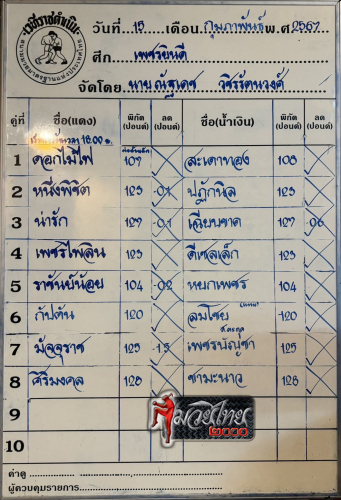 เวทีราชดำเนิน
วันที่ 15 เดือน กุมภาพันธ์ พ.ศ 2567
ศึก เพชรยินดี
จัดโดย นาย ณัฐเดช วชิรรัตนวงศ์
คู่ที่ ชื่อ(แดง) พิกัด (ปอนด์) ลด (ปอนด์) ชื่อ(น้ำเงิน) พิกัด (ปอนด์) ลด (ปอนด์)
18:00 น.
1 ดอกไม้ไฟ 109 สะเดาทอง 108
2 หนึ่งพิชิต 123 0.1 ปฏักนิล 123
3 น่ารัก 127 0.1 เฉียบขาด 127 0.6
4 เพชรไพลิน 123 ดีเซลเล็ก 123
5 ราชันย์น้อย 104 0.2 หยกเพชร 104
6 กัปตัน 120 ลมโชย 120
7 มัจจุราช 125 1.5 เพชรบัญชา 125
8 ศิริมงคล 128 ชามะนาว 128
9
10
มวยไทย
2000
คำคู่
ผู้ควบคุมรายการ